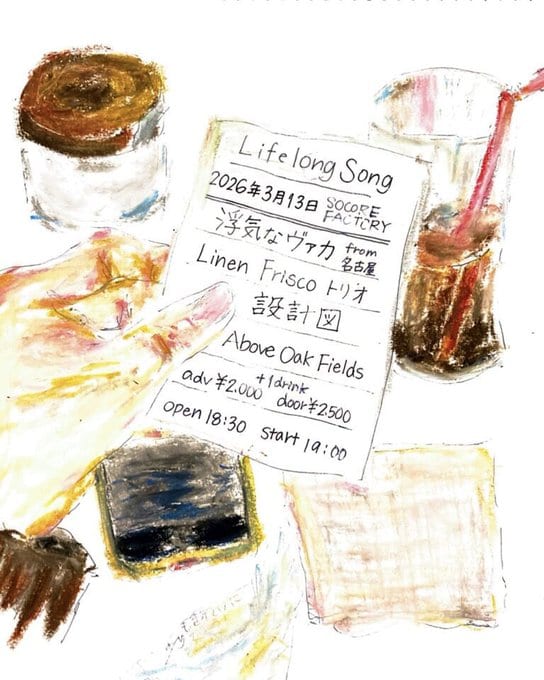 Lifelong Song
2026年3月13日 SOCORE FACTORY
浮気なヴァカ from 名古屋
Linen Frisco トリオ
設計図
Above Oak Fields
adv ¥2.000 +1drink door ¥2.500
open 18:30 start 19:00